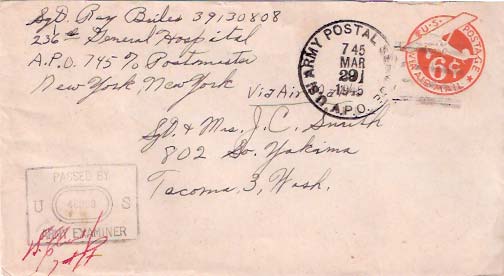 Sgt. Ray Biiles 39130808
236th General Hospital
A.P.O. 745 % Postmaster
New York, New York
Via Air
U.S. ARMY POSTAL SERVICE
745
MAR
29
1945
A.P.O.
U.S. POSTAGE
6¢
VIA AIR MAIL
Sgt. & Mrs. J.C. Smith
802 So. Yakima
Tacoma, 3, Wash.
PASSED BY
U S
ARMY EXAMINER